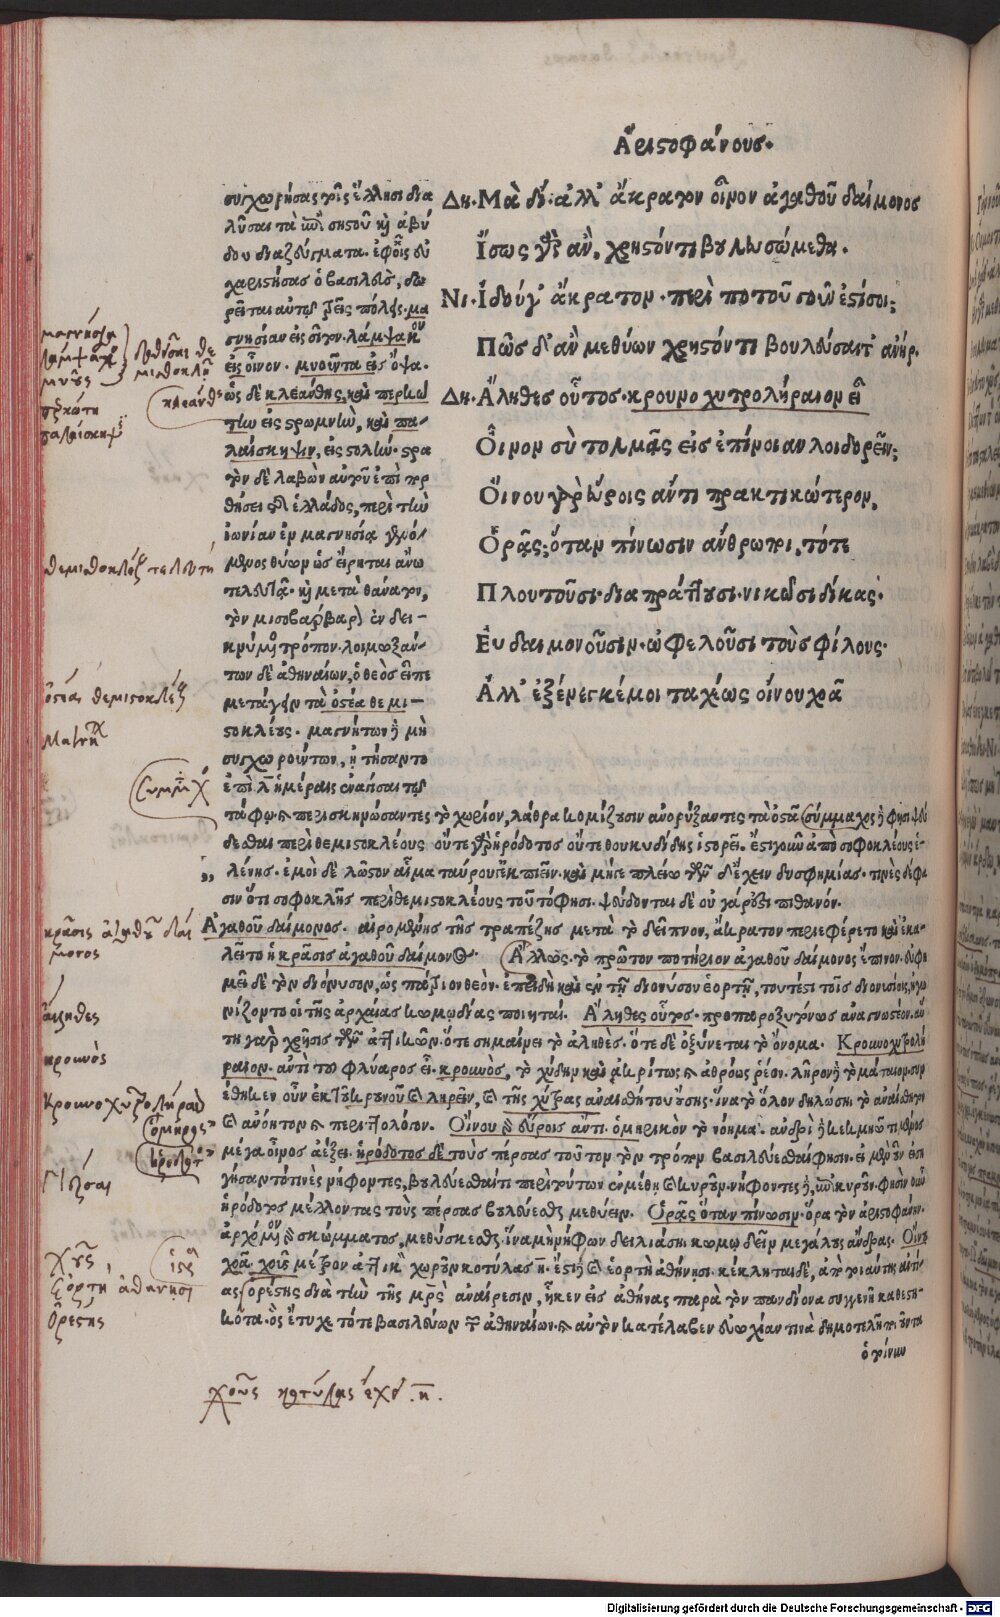 Ἀριστοφάνους.
Δη. Μὰ δί. ἀλλ' ἄκρατον οἶνον ἀγαθοῦ δαίμονος
Ἴσως γὰρ ἂν, χρηστόν τι βουλευσώμεθα.
Νι. Ἰδού γ' ἄκρατον. περὶ ποτοῦ γοῦν ἐστί σοι;
Πῶς δ' ἂν μεθύων χρηστόν τι βουλεύσαιτ' ἀνήρ.
Δη. Ἄληθες οὗτος. κρουνοχυτρολήραιον εἶ
Οἶνον σὺ τολμᾷς εἰς ἐπίνοιαν λοιδορεῖν;
Οἴνου γὰρ εὕροις ἄντι πρακτικώτερον,
Ὁρᾷς; ὅταν πίνωσιν ἄνθρωποι, τότε
Πλουτοῦσι. διαπράττουσι. νικῶσι δίκας.
Εὐδαιμονοῦσιν. ὠφελοῦσι τοὺς φίλους.
Ἀλλ' ἐξένεγκέ μοι ταχέως οἴνου χοᾶ
συγχωρήσας τοῖς ἕλλησι δια
λῦσαι τὰ ἐπὶ σηστοῦ καὶ ἀβύ
δου διαζεύγματα. ἐφ' οἷς εὐ
χαριστήσας ὁ βασιλεὺς, δω
ρεῖται αὐτῷ τρεῖς πόλεις. μα
γνησίαν εἰς σῖτον. λάμψακον
εἰς οἶνον. μυοῦντα εἰς ὄψα.
ὡς δὲ κλεάνθης, καὶ περκώ
την εἰς στρωμνὴν, καὶ πα-
λαίσκηψιν, εἰς στολήν. στρα
τὸν δὲ λαβὼν αὐτοῦ ἐπὶ πορ
θήσει τῆς ἑλλάδος, περὶ τὴν
ἰωνίαν ἐν μαγνησίᾳ γενό-
μενος θύων ὡς εἴρηται ἄνω
τελευτᾷ. καὶ μετὰ θάνατον,
τὸν μισοβάρβαρον ἐνδει-
κνύμενος τρόπον. λοιμωξάν-
των δὲ ἀθηναίων, ὁ θεὸς εἶπε
μετάγειν τὰ ὀστέα θεμι-
στοκλέους. μαγνήτων δὲ μὴ
συγχωρούντων, ᾐτήσαντο
ἐπὶ λ ἡμέραις ἐναγίσαι τῷ
τάφῳ. καὶ περισκηνώσαντες τὸ χωρίον, λάθρα κομίζουσιν ἀνορύξαντες τὰ ὀστᾶ. σύμμαχος δὲ φησι ψεύ
δεσθαι περὶ θεμιστοκλέους οὔτε γὰρ ἡρόδοτος οὔτε θουκυδίδης ἱστορεῖ. ἔστι γοῦν ἀπὸ σοφοκλέους ἑ-
λένης. ἐμοὶ δὲ λῷστον αἷμα ταύρου γ' ἐκπιεῖν. καὶ μή γε πλείω τῶνδ' ἔχειν δυσφημίας. τινὲς δέ φα
σιν ὅτι σοφοκλῆς περὶ θεμιστοκλέους τοῦτό φησι. ψεύδονται δὲ οὐ γάρ ἐστι πιθανόν.
Ἀγαθοῦ δαίμονος. αἰρομένης τῆς τραπέζης μετὰ τὸ δεῖπνον, ἄκρατον περιεφέρετο καὶ ἐκα-
λεῖτο ἡ κρᾶσις ἀγαθοῦ δαίμονος. Ἄλλως. τὸ πρῶτον ποτήριον ἀγαθοῦ δαίμονος ἔπινον. εὐφη
μεῖ δὲ τὸν διόνυσον, ὡς πάτριον θεόν. ἐπειδὴ καὶ ἐν τῇ διονύσου ἑορτῇ, τουτέστι τοῖς διονυσίοις, ἠγω
νίζοντο οἱ τῆς ἀρχαίας κωμῳδίας ποιηταί. Ἄληθες οὗτος. προπαροξυτόνως ἀναγνωστέον. αὕ
τη γὰρ χρῆσις τῶν ἀττικῶν. ὅτε σημαίνει τὸ ἀληθές. ὅτε δὲ ὀξύνεται τὸ ὄνομα. Κρουνοχυτρολή
ραιον. ἀντὶ τοῦ φλύαρος εἶ. κρουνὸς, τὸ χύδην καὶ ἀκρίτως καὶ ἀθρόως ῥέον. λῆρον δὲ τὸ μάταιον. συν
έθηκεν οὖν ἐκ τοῦ κρουνοῦ καὶ ληρεῖν, καὶ τῆς χύτρας ἀναισθήτου οὔσης. ἵνα τὸ ὅλον δηλώσῃ τὸ ἀναίσθητον
καὶ ἀνόητον καὶ περιττολόγον. Οἴνου γὰρ εὕροις ἄντι. ὁμηρικὸν τὸ νόημα. ἀνδρὶ δὲ κεκμηῶτι μένος
μέγα οἶνος ἀέξει. ἡρόδοτος δὲ τοὺς πέρσας τοῦτον τὸν τρόπον βουλεύεσθαί φησιν.
ἡρόδοτος μέλλοντας τοὺς πέρσας βουλεύεσθαι μεθύειν. Ὁρᾷς ὅταν πίνωσιν. ὅρα τὸν ἀριστοφάνην.
ἀρχόμενον τοῦ σκώμματος, μεθύσκεσθαι. ἵνα μὴ νήφων δειλιάσῃ κωμῳδεῖν μεγάλους ἄνδρας. Οἴνου
χοᾶ. χοῦς μέτρον ἀττικὸν χωροῦν κοτύλας η. ἔστι δὲ καὶ ἑορτὴ ἀθήνησι. κέκληται δὲ, ἀπὸ τοιαύτης αἰτί-
ας ὀρέστης διὰ τὴν τῆς μητρὸς ἀναίρεσιν, ἧκεν εἰς ἀθήνας παρὰ τὸν πανδίονα συγγενῆ καθεστη-
κότα. ὃς ἔτυχε τότε βασιλεύων τῶν ἀθηναίων. καὶ αὐτὸν κατέλαβεν εὐωχίαν τινὰ δημοτελῆ ποιοῦντα
ὁ τοίνυν
μαγνησία
λάμψακος
μυοῦς
περκώτη
παλαίσκηψις
κλεάνθης
θεμιστοκλέους τελευτή
ὀστέα θεμιστοκλέους
σύμμαχος
κρᾶσις ἀγαθοῦ δαί
μονος
ἄληθες
κρουνὸς
κρουνοχυτρολήραιον
ὅμηρος
ἡρόδοτος
Πέρσαι
χοῦς
ἑορτὴ ἀθήνησι
ὀρέστης
χοῦς κοτύλας ἔχει .η.
Digitalisierung gefördert durch die Deutsche Forschungsgemeinschaft - DFG